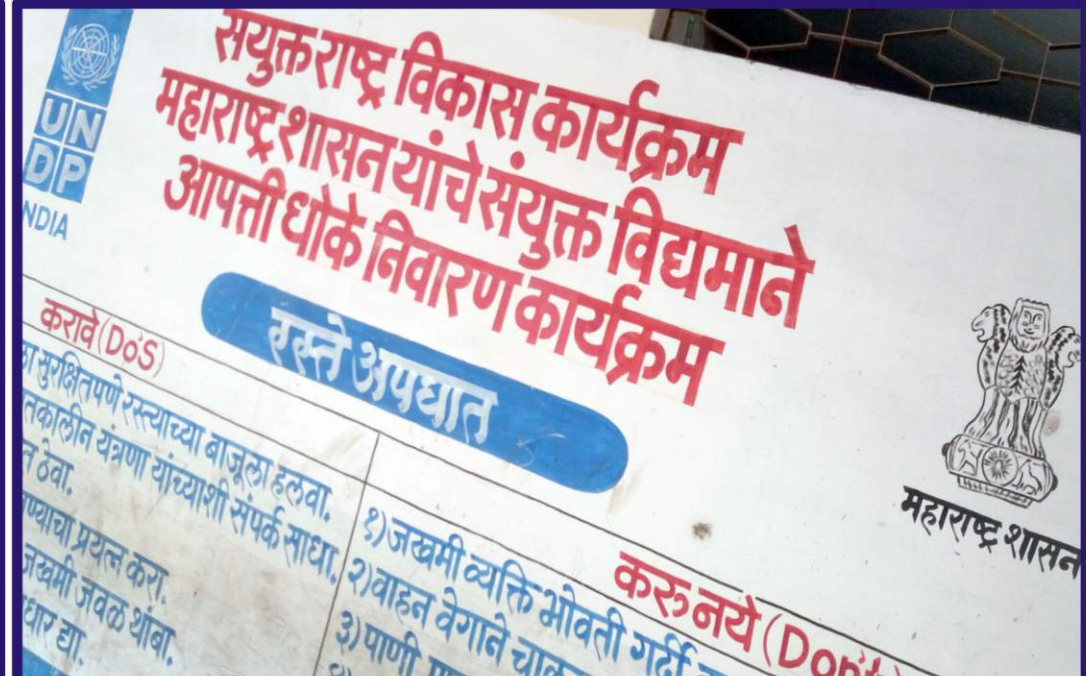 UN
DP
सयुक्तराष्ट्र विकास कार्यक्रम
महाराष्ट्र शासन यांचे संयुक्त विद्यमाने
आपत्ती धोके निवारण कार्यक्रम
रस्ते अपघात
महाराष्ट्र शासन
करावे (Do'S)
सुरक्षितपणे रस्त्याच्या बाजूला हलवा.
यंत्रणा यांच्याशी संपर्क साधा.
ठेवा.
प्रयत्न करा.
जखमी जवळ थांबा.
द्या.
करु नये (Don't
१) जखमी व्यक्ति भोवती गर्दी
२) वाहन वेगाने
३) पाणी